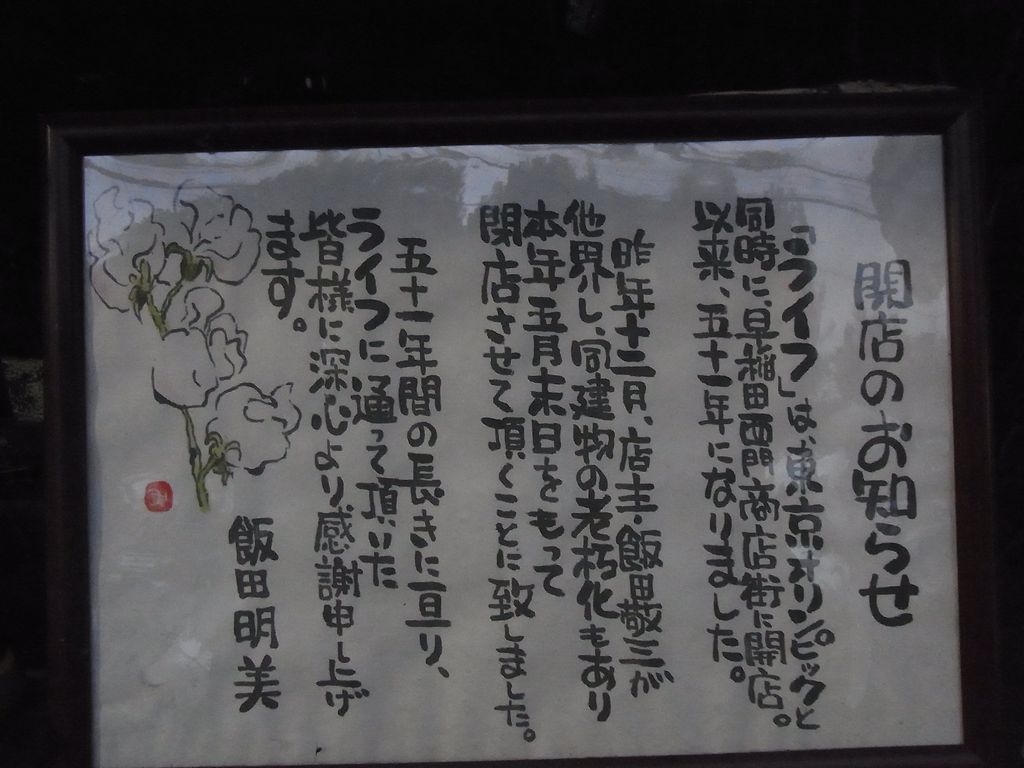 閉店のお知らせ
「ライフ」は、東京オリンピックと
同時に、早稲田西門商店街に開店。
以来、五十一年になりました。
昨年十二月、店主・飯田敬三が
他界し、同建物の老朽化もあり
本年五月末日をもって
閉店させて頂くことに致しました。
五十一年間の長きに亘り、
ライフに通って頂いた
皆様に深心より感謝申し上げ
ます。
飯田明美